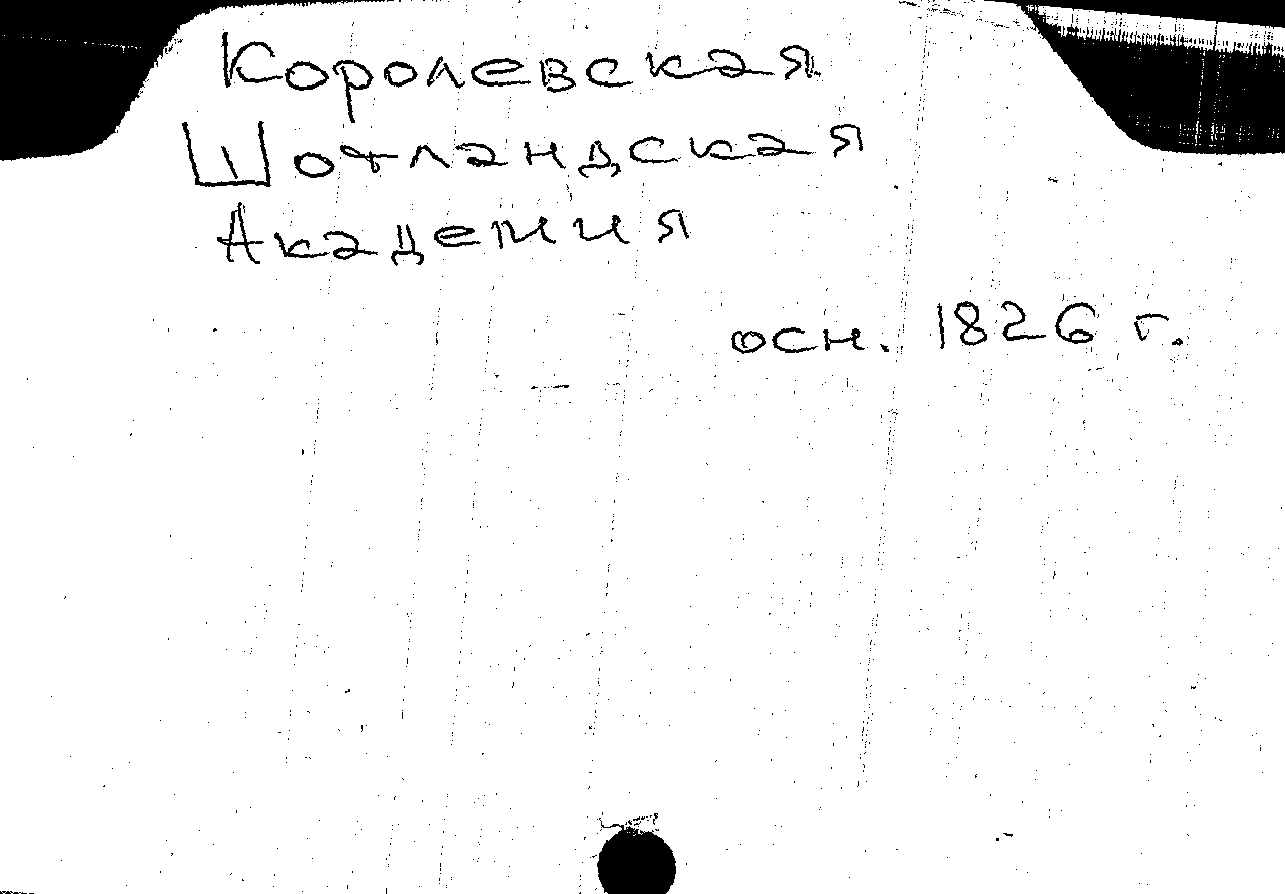 Королевская
Шотландская
Академия
осн. 1826 г.